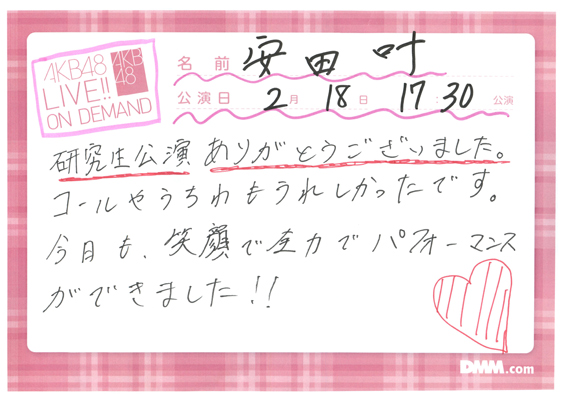 AKB48
LIVE!!
ON DEMAND
AKB
48
名前 安田叶
公演日 2月 18日 17:30 公演
研究生公演 ありがとうございました。
コールやうちわもうれしかったです。
今日も、笑顔で全力でパフォーマンス
ができました!!
DMM.com